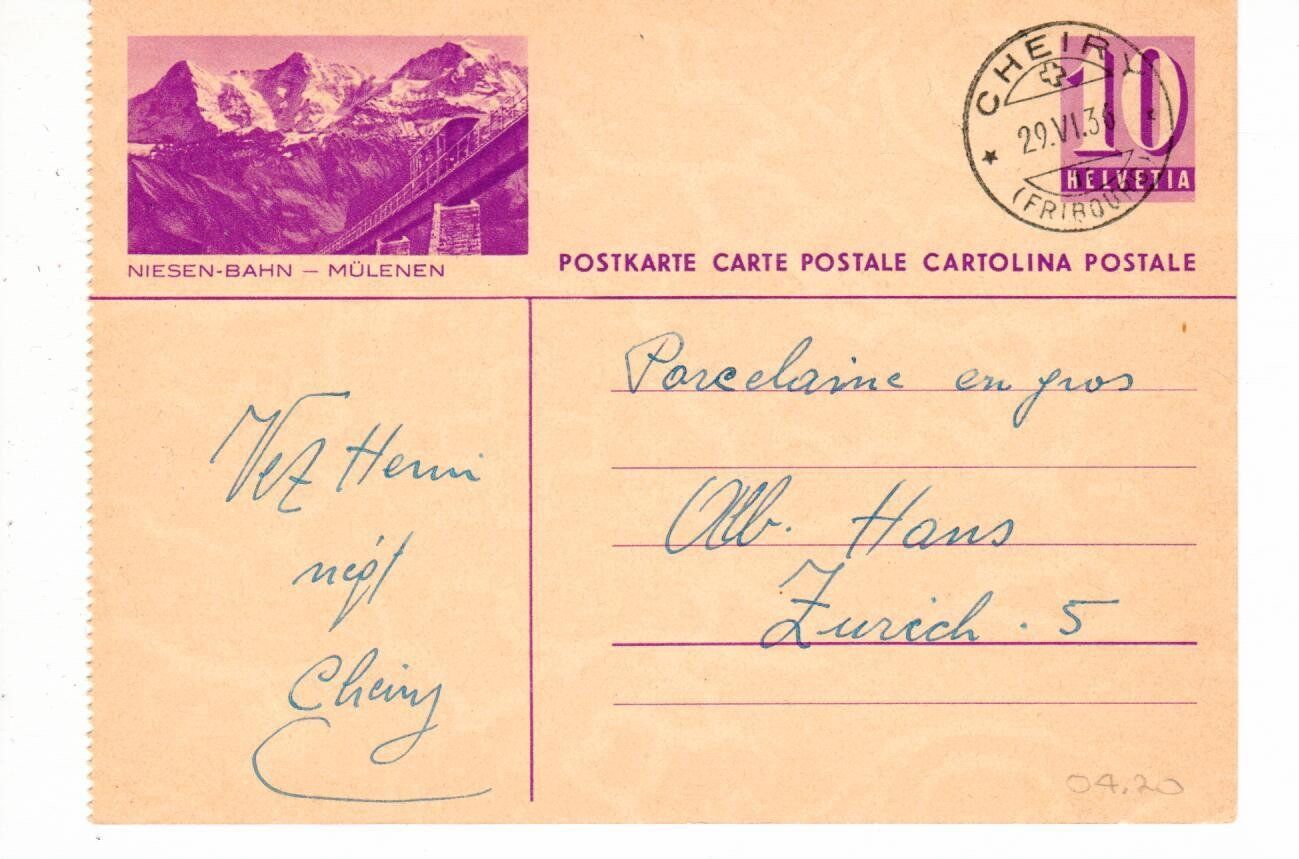 CHEIRY
29.VI.36
(FRIBOURG)
10
HELVETIA
NIESEN-BAHN – MÜLENEN
POSTKARTE CARTE POSTALE CARTOLINA POSTALE
Porcelaine en gros
Alb. Hans
Zurich . 5
Vez Henri
négt
Cheiry
04.20